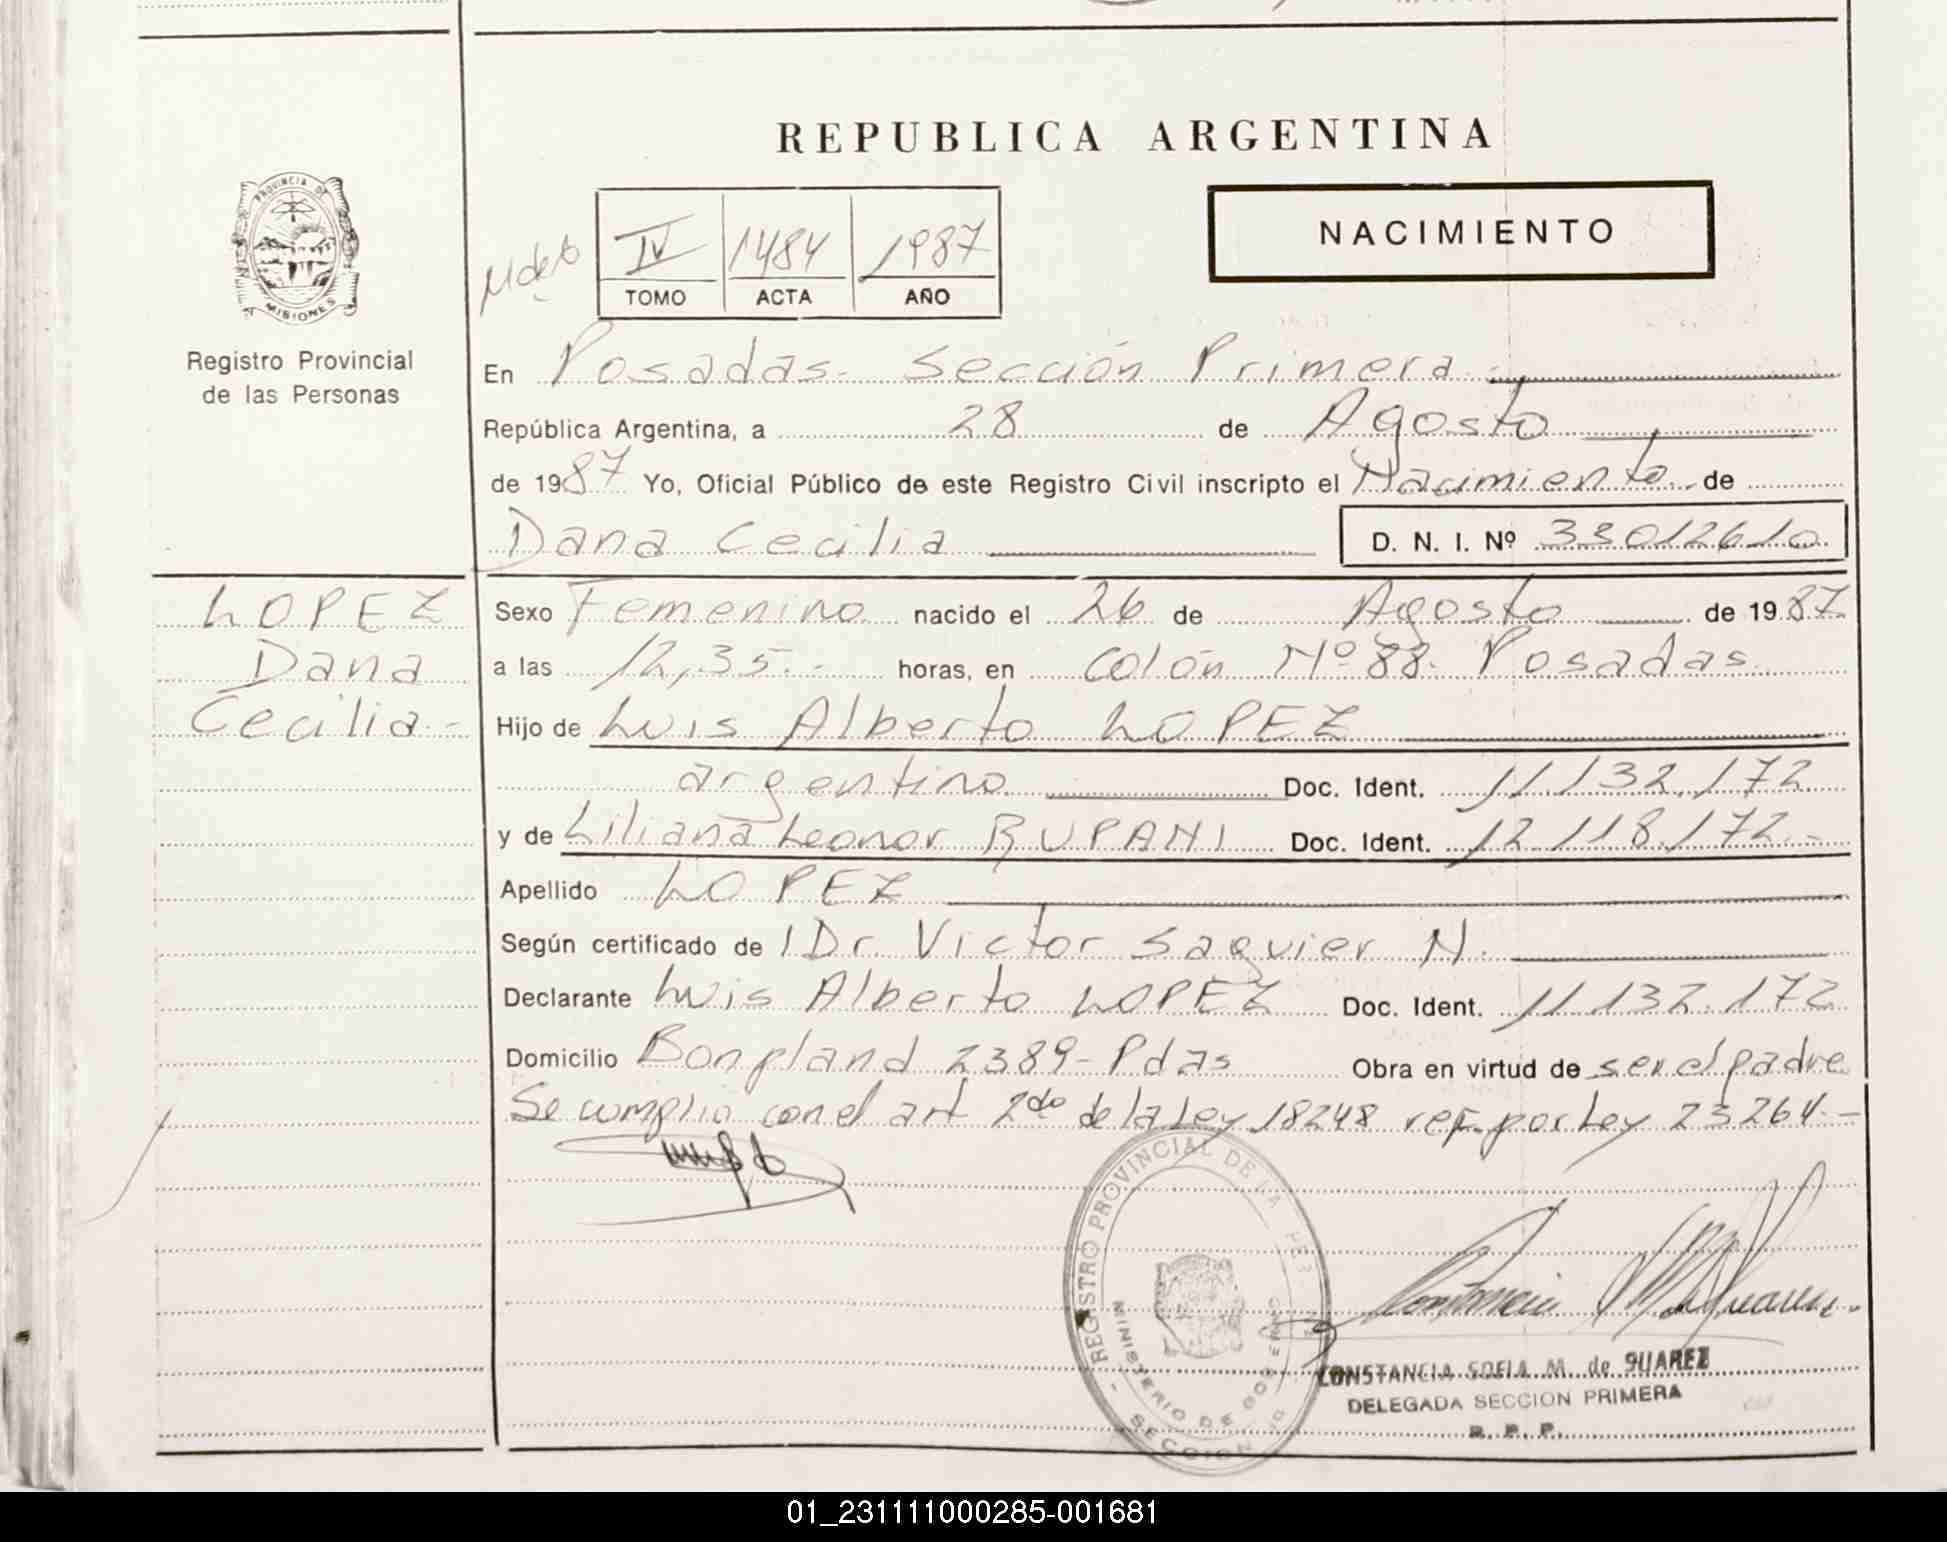 REPUBLICA ARGENTINA
NACIMIENTO
IV 1484 1987
TOMO ACTA AÑO
PROVINCIA DE
MISIONES
Registro Provincial
de las Personas
En Posadas- Sección Primera.-
República Argentina, a 28 de Agosto
de 1987 Yo, Oficial Público de este Registro Civil inscripto el Nacimiento de
Dana Cecilia D. N. I. Nº 33012610
LOPEZ
Dana
Cecilia.-
Sexo Femenino nacido el 26 de Agosto de 1987
a las 12,35.- horas, en Colón Nº 88. Posadas
Hijo de Luis Alberto LOPEZ
argentino Doc. Ident. 11.132.172
y de Liliana Leonor RUPANI Doc. Ident. 12.118.172.-
Apellido LOPEZ
Según certificado de l Dr. Victor Saguier N.
Declarante Luis Alberto LOPEZ Doc. Ident. 11.132.172
Domicilio Bonpland 2389- Pdas Obra en virtud de ser el padre
Se cumplió con el art 2do de la Ley 18248 ref. por Ley 23264.-
REGISTRO PROVINCIAL DE LA
MINISTERIO DE GOBIERNO
SECCION
CONSTANCIA SOFIA M. de SUAREZ
DELEGADA SECCION PRIMERA
R. P. P.
01_231111000285-001681